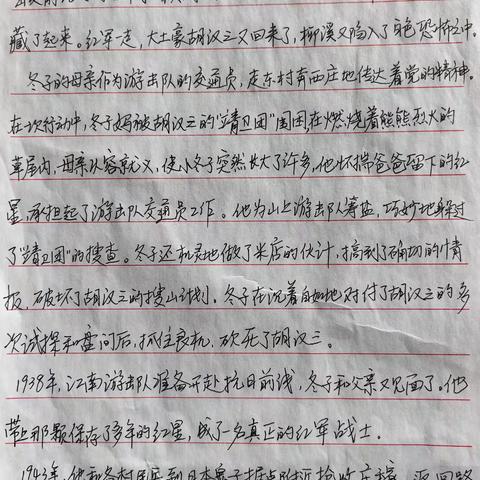 藏了起来。红军一走，大土豪胡汉三又回来了，柳溪又陷入了白色恐怖之中。
冬子的母亲作为游击队的交通员，走东村奔西庄地传达着党的精神。
在一次行动中，冬子妈被胡汉三的“靖卫团”围困，在燃烧着熊熊烈火的
草屋内，母亲从容就义，使小冬子突然长大了许多，他怀揣爸爸留下的红
星，承担起了游击队交通员工作。他为山上游击队筹盐，巧妙地躲过
了“靖卫团”的搜查。冬子还机灵地做了米店的伙计，搞到了确切的情
报，破坏了胡汉三的搜山计划。冬子在沉着自如地对付了胡汉三的多
次试探和盘问后，抓住良机，砍死了胡汉三。
1938年，江南游击队准备开赴抗日前线，冬子和父亲又见面了。他
带上那颗保存了多年的红星，成了一名真正的红军战士。
1943年，他和各村民兵到日本鬼子据点附近抢收庄稼，